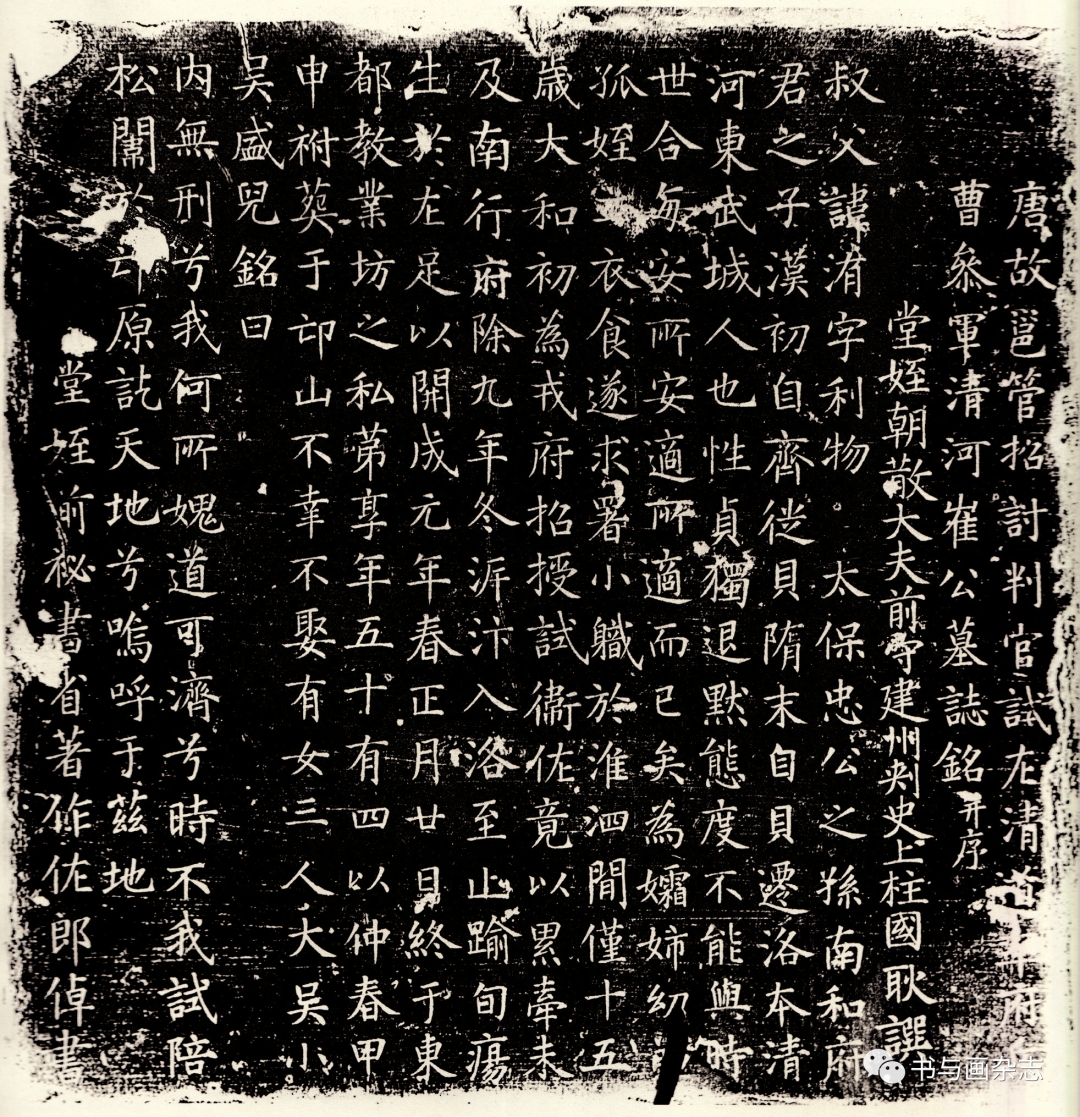 唐故邕管招討判官試左清道率府兵
曹叅軍清河崔公墓誌銘并序
堂姪朝散大夫前守建州刺史上柱國耿譔
叔父諱淯字利物。太保忠公之孫南和府
君之子漢初自齊徙貝隋末自貝遷洛本清
河東武城人也性貞獨退默態度不能與時
世合每安所安適所適而已矣為孀姉幼
孤姪衣食遂求署小職於淮泗間僅十五
歲大和初為戎府招授試衛佐竟以累牽未
及南行府除九年冬泝汴入洛至止踰旬瘍
生於左足以開成元年春正月廿日終于東
都教業坊之私第享年五十有四以仲春甲
申祔葬于邙山不幸不娶有女三人大吳小
吳盛兒銘曰
內無刑兮我何所媿道可濟兮時不我試陪
松闈於邙原託天地兮嗚呼于茲地
堂姪前祕書省著作佐郎倬書
书与画杂志